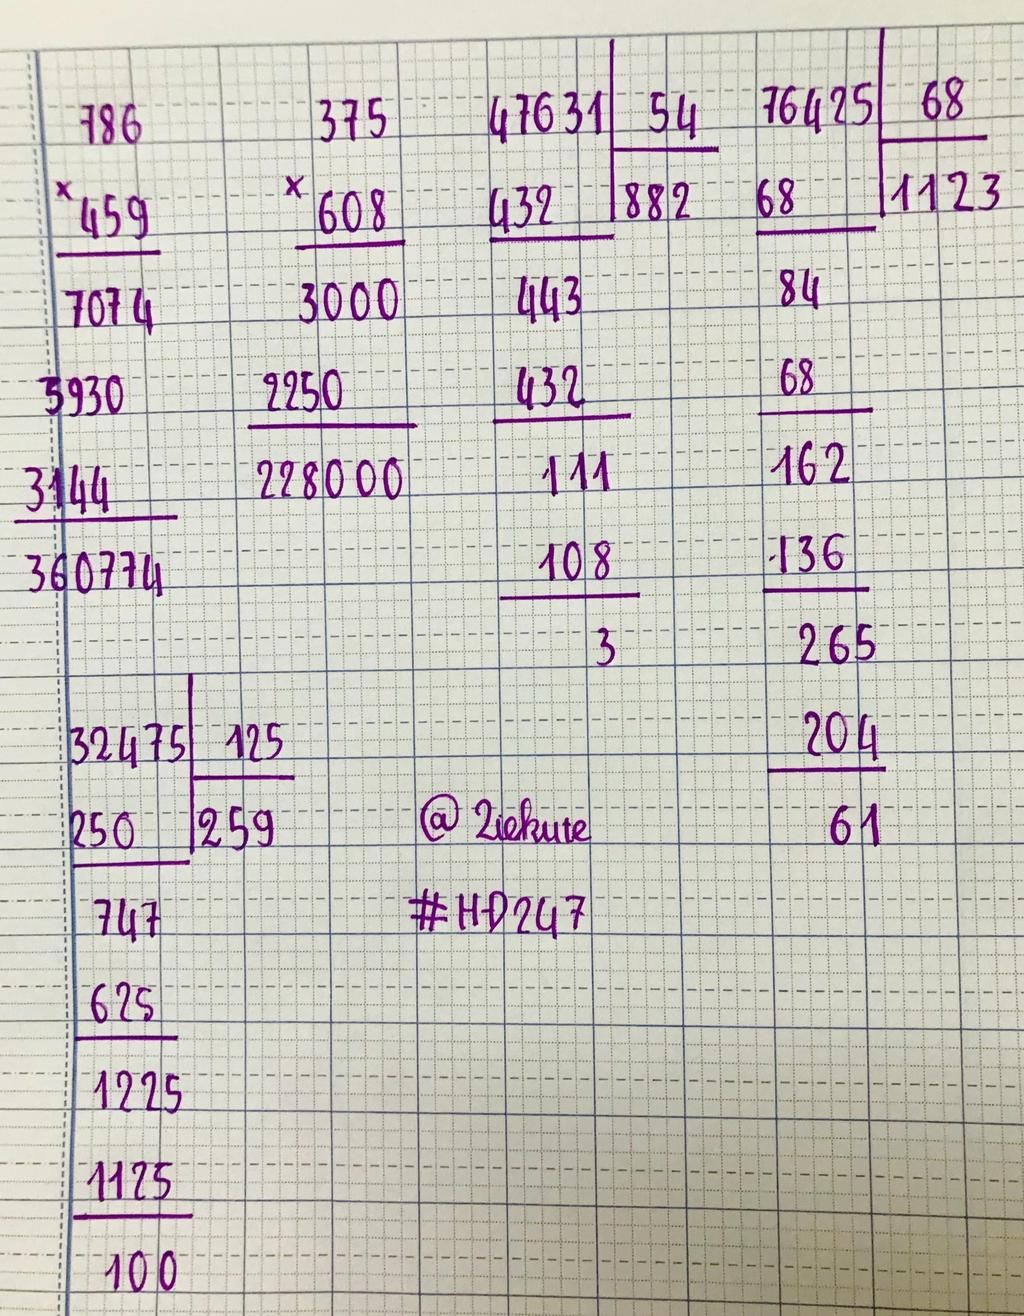 786
× 459
7074
3930
3144
360774
375
× 608
3000
2250
228000
47631 54
432 882
443
432
111
108
3
76425 68
68 1123
84
68
162
136
265
204
61
32475 125
250 259
747
625
1225
1125
100
@ 2iekute
#HD247